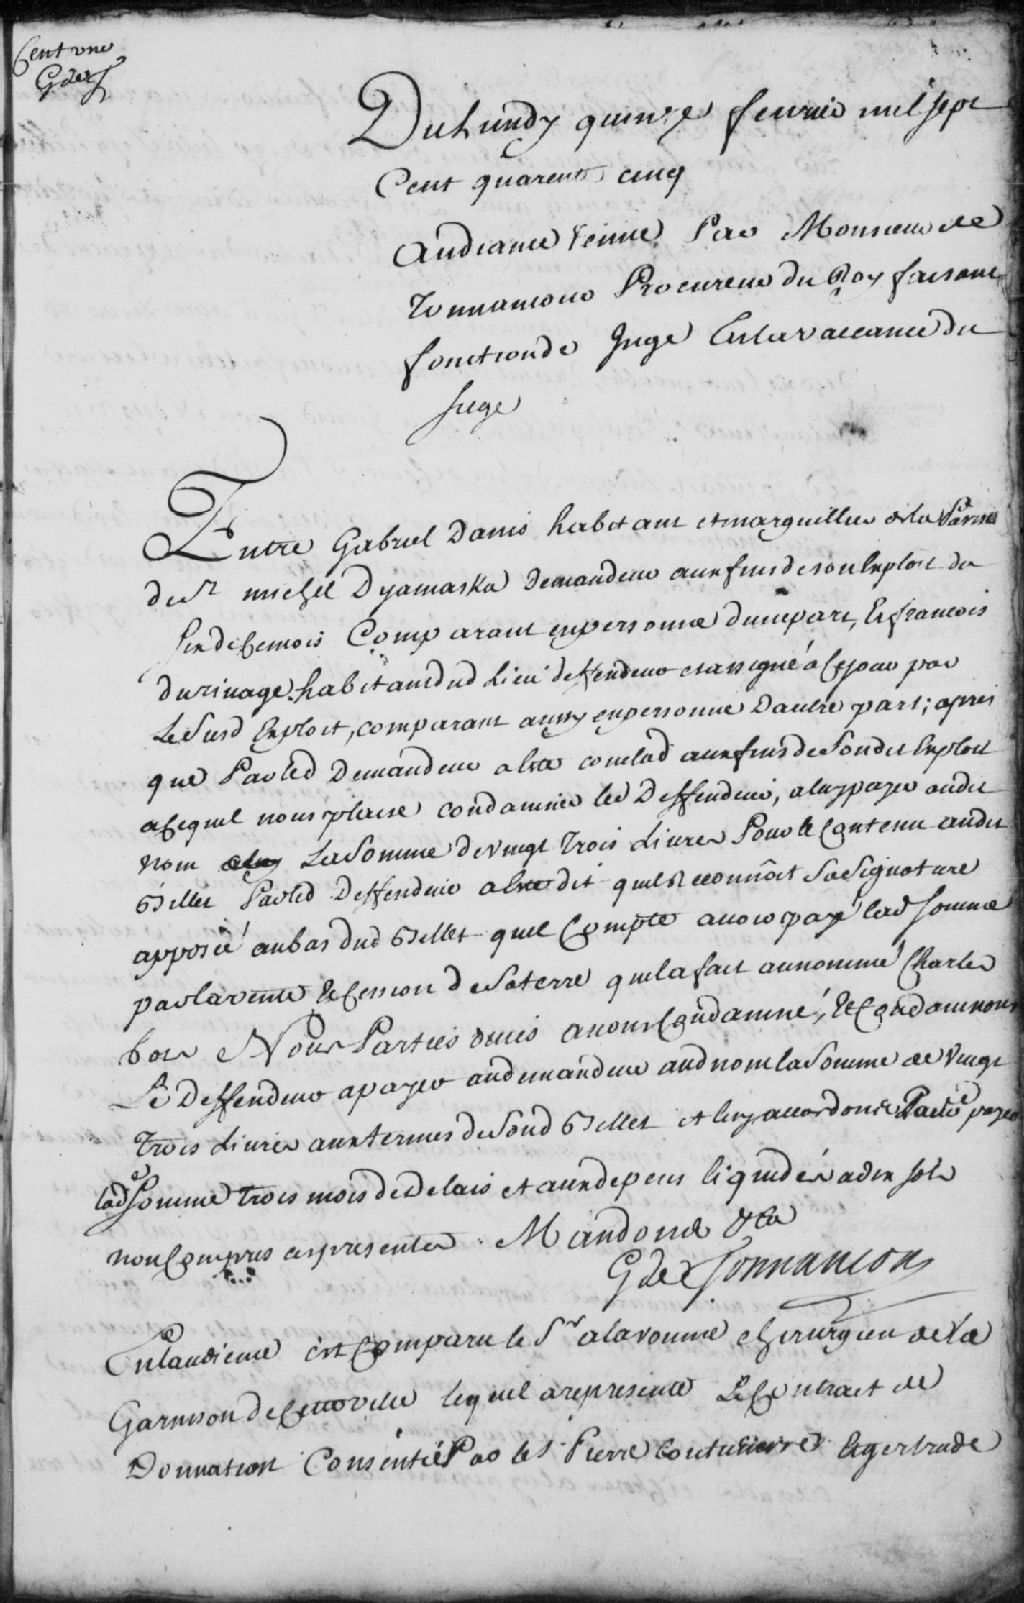 Cent une
G de T
Du Lundy quinze fevrier mil sept
Cent quarente cinq
Audiance tenue Par Monsieur de
Tonnancour Procureur du Roy faisant
fonction de Juge En la vaccance du
siege
Entre Gabriel Danis habitant et marguillier de la Paroisse
de St michel Dyamaska Demandeur aux fins de son Exploit du
six de ce mois Comparant en personne dune part, Et francois
durivage habitant dud Lieu deffendeur et assigné a ce jour par
Le Susd Exploit, comparant aussy en personne Dautre part; apres
que Par led Demandeur a Eté conclud aux fins de Son dit Exploit
a Ce quil nous plaise condamner led Deffendeur, a luy payer audit
nom La Somme de vingt Trois Livres Pour le Contenu audit
Billet Par led Deffendeur a Eté dit quil Reconnoit Sa Signature
apposée au bas dud Billet quil Compte avoir payé lad Somme
par la vente Et Cession de Sa terre quil a fait au nommé Charles
bois Nous Parties ouies avons Condamné, Et Condamnons
Le Deffendeur a payer au demandeur aud nom la Somme de Vingt
Trois Livres aux termes de Son d Billet et luy accordons Pour payer
lad Somme trois mois de delais et aux depens liquidés a dix sols
non Compris ces presentes. Mandons &ca
G de Tonnancour
En laudience est Comparu le Sr alavoinne chirurgien de la
Garnison de Cette ville lequel a representé Le Contract de
Donnation Consentie Par le S Pierre Couturier Et gertrude